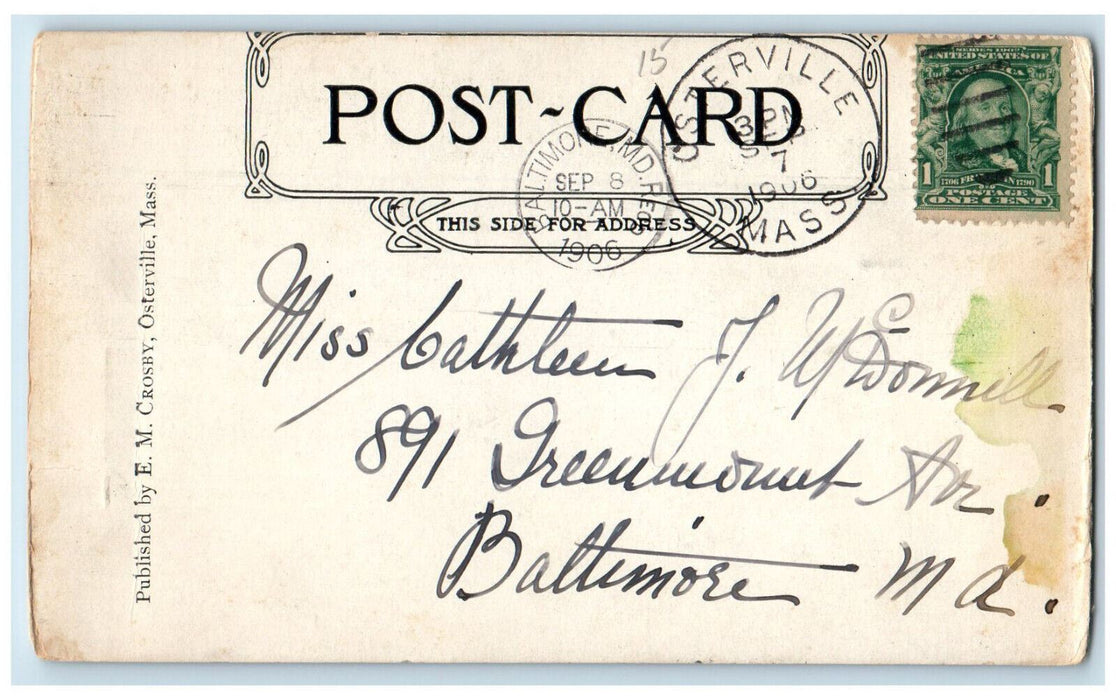 15
POST-CARD
THIS SIDE FOR ADDRESS
OSTERVILLE
3 PM
SEP
7
1906
MASS.
BALTIMORE, MD. REC'D
SEP 8
10-AM
1906
SERIES 1902
UNITED STATES OF
AMERICA
1 1706 FRANKLIN 1790 1
POSTAGE
ONE CENT
Miss Cathleen J. McDonnell
891 Greenmount Av.
Baltimore Md.
Published by E. M. CROSBY, Osterville, Mass.